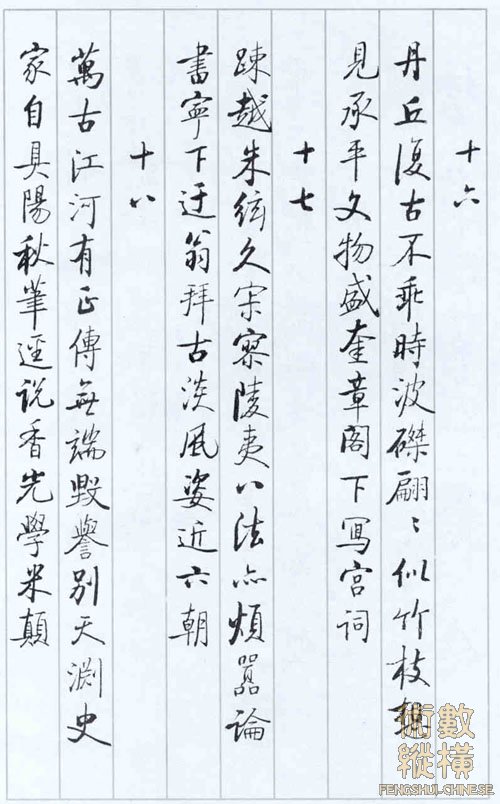 十六
丹丘復古不乖時波磔翩〻似竹枝想
見承平文物盛奎章閣下寫宮詞
十七
疎越朱絃久宋寥陵夷八法亦煩囂論
書寧下迂翁拜古淡風姿近六朝
十八
萬古江河有正傳無端毀譽別天淵史
家自具陽秋筆逕說香光學米顛
術數
縱橫
FENGSHUI-CHINESE